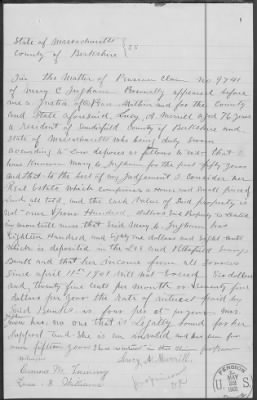 State of Massachusetts
County of Berkshire } SS
In the Matter of Pension Claim No. 9741
of Mary C. Ingham Personally appeared before
me a Justice of Peace Within and for the County
and State aforesaid, Lucy A. Merrill aged 76 years
a resident of Sandisfield County of Berkshire and
State of Massachusetts who being duly sworn
according to Law deposes as follows to wit that I
have known Mary C. Ingham for the past fifty years
and that to the best of my Judgement I consider her
Real Estate which comprises a House and Small piece of
Land all told, and the cash Value of Said property is
not over Hundred, dollars
that Said Mary C. Ingham has
Eighteen Hundred and Eighty dollars and Eight cents
which is deposited in the Lee and Pittsfield Savings
Banks and that her income from all sources
Since april 11th 1901 Will not Exceed Six dollars
and twenty five cents per month or seventy five
dollars per year the rate of interest paid by
Said Banks is four per ct per annum Mrs
has no one that is Legally bound for her
Support and She is an invalid and has been for
over fifteen years
Witness
Lucy A. Merrill
PENSION
MAY
1901
U S